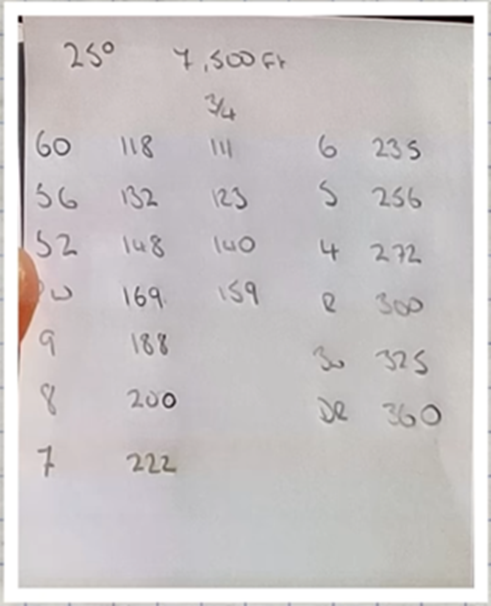 25° 7,500 Ft
3/4
60 118 111 6 235
56 132 123 5 256
52 148 140 4 272
W 169 159 300
9 188 3W 325
8 200 DR 360
7 222